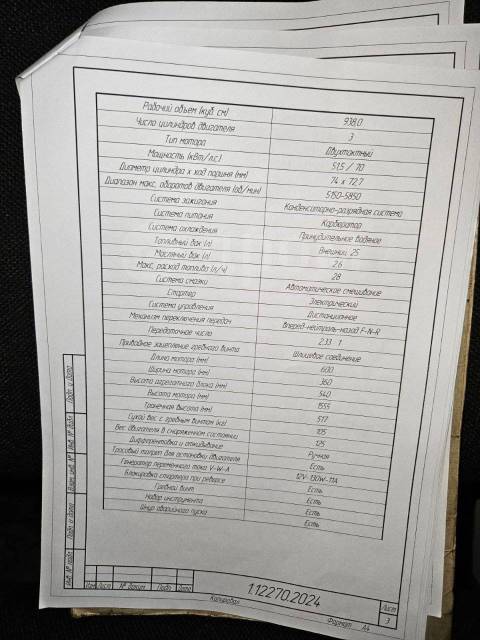 Рабочий объем (куб. см) 938,0
Число цилиндров двигателя 3
Тип мотора Двухтактный
Мощность (кВт/л.с.) 51,5 / 70
Диаметр цилиндра х ход поршня (мм) 74 х 72.7
Диапазон макс. оборотов двигателя (об/мин) 5150-5850
Система зажигания Конденсаторно-разрядная система
Система питания Карбюратор
Система охлаждения Принудительное водяное
Топливный бак (л) Внешний, 25
Масляный бак (л) 2.6
Макс. расход топлива (л/ч) 28
Система смазки Автоматическое смешивание
Стартер Электрический
Система управления Дистанционное
Механизм переключения передач Вперед-нейтраль-назад F-N-R
Передаточное число 2.33 : 1
Приводное зацепление гребного винта Шлицевое соединение
Длина мотора (мм) 600
Ширина мотора (мм) 360
Высота агрегатного блока (мм) 540
Высота мотора (мм) 1555
Транцевая высота (мм) 517
Сухой вес с гребным винтом (кг) 105
Вес двигателя в снаряженном состоянии 125
Дифферентовка и откидывание Ручная
Тросовый талреп для остановки двигателя Есть
Генератор переменного тока V-W-A 12V-130W-11A
Блокировка стартера при реверсе Есть
Гребной винт Есть
Набор инструмента Есть
Шнур аварийного пуска Есть
Подп. и дата
Инв. № дубл.
Взам. инв. №
Подп. и дата
Инв. № подл.
Изм. Лист № докум. Подп. Дата
1.12270.2024
Лист
3
Копировал Формат А4